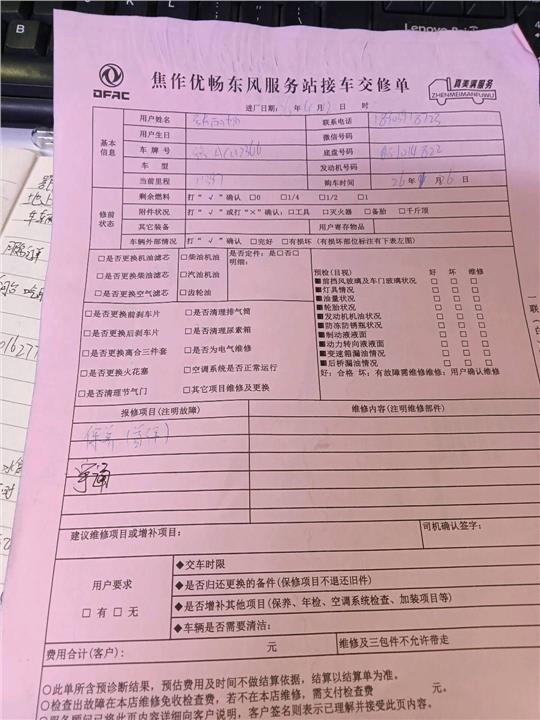 Lenovo
DFAC
焦作优畅东风服务站接车交修单
真美满服务
ZHENMEIMANFUWU
进厂日期: 年 月 日 时
基本信息
用户姓名
联系电话
用户生日
微信号码
车牌号
底盘号码
车型
发动机号码
当前里程
购车时间 26年 月6日
修前状况
剩余燃料 打“√”确认 □0 □1/4 □1/2 □1
附件状况 打“√”或打“×”确认: □工具 □灭火器 □备胎 □千斤顶
其它装备
用户寄存物品
车辆外部情况 打“√”确认 □完好 □有损坏(有损坏部位标注有下表左图)
□是否更换机油滤芯
□是否更换柴油滤芯
□是否更换空气滤芯
□柴油机油
□汽油机油
□齿轮油
是否定件: 是□否□
明细:
□是否更换前刹车片
□是否更换后刹车片
□是否更换离合三件套
□是否更换火花塞
□是否清理节气门
□是否清理排气筒
□是否清理尿素箱
□是否为电气维修
□空调系统是否正常运行
□其它项目维修及更换
预检(目视) 好 坏 维修
■前挡风玻璃及车门玻璃状况 □ □ □
■灯具情况 □ □ □
■油量状况 □ □ □
■轮胎状况 □ □ □
■发动机机油状况 □ □ □
■防冻防锈瓶状况 □ □ □
■制动液液面 □ □ □
■动力转向液液面 □ □ □
■变速箱漏油情况 □ □ □
■后桥漏油情况 □ □ □
好: 合格 坏: 有故障需维修维修: 用户确认维修
报修项目(注明故障)
维修内容(注明维修部件)
保养(首保)
建议维修项目或增补项目:
司机确认签字:
用户要求
□有□无
◆交车时限
◆是否归还更换的备件(保修项目不退还旧件)
◆是否增补其他项目(保养、年检、空调系统检查、加装项目等)
◆车辆是否需要清洁:
费用合计(客户): 元
维修及三包件不允许带走
○此单所含预诊断结果, 预估费用及时间不做结算依据, 结算以结算单为准。
○检查出故障在本店维修免收检查费, 若不在本店维修, 需支付检查费 元。
○服务顾问已将此页内容详细向客户说明, 客户签名则表示已理解并接受此页内容。